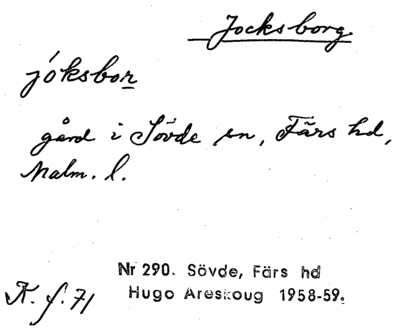 Jocksborg
jóksbor
gård i Sövde sn, Färs hd,
Malm. l.
Nr 290. Sövde, Färs hd
Hugo Areskoug 1958-59.
K. f. 71